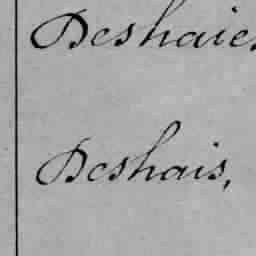 Deshaies
Deshais,